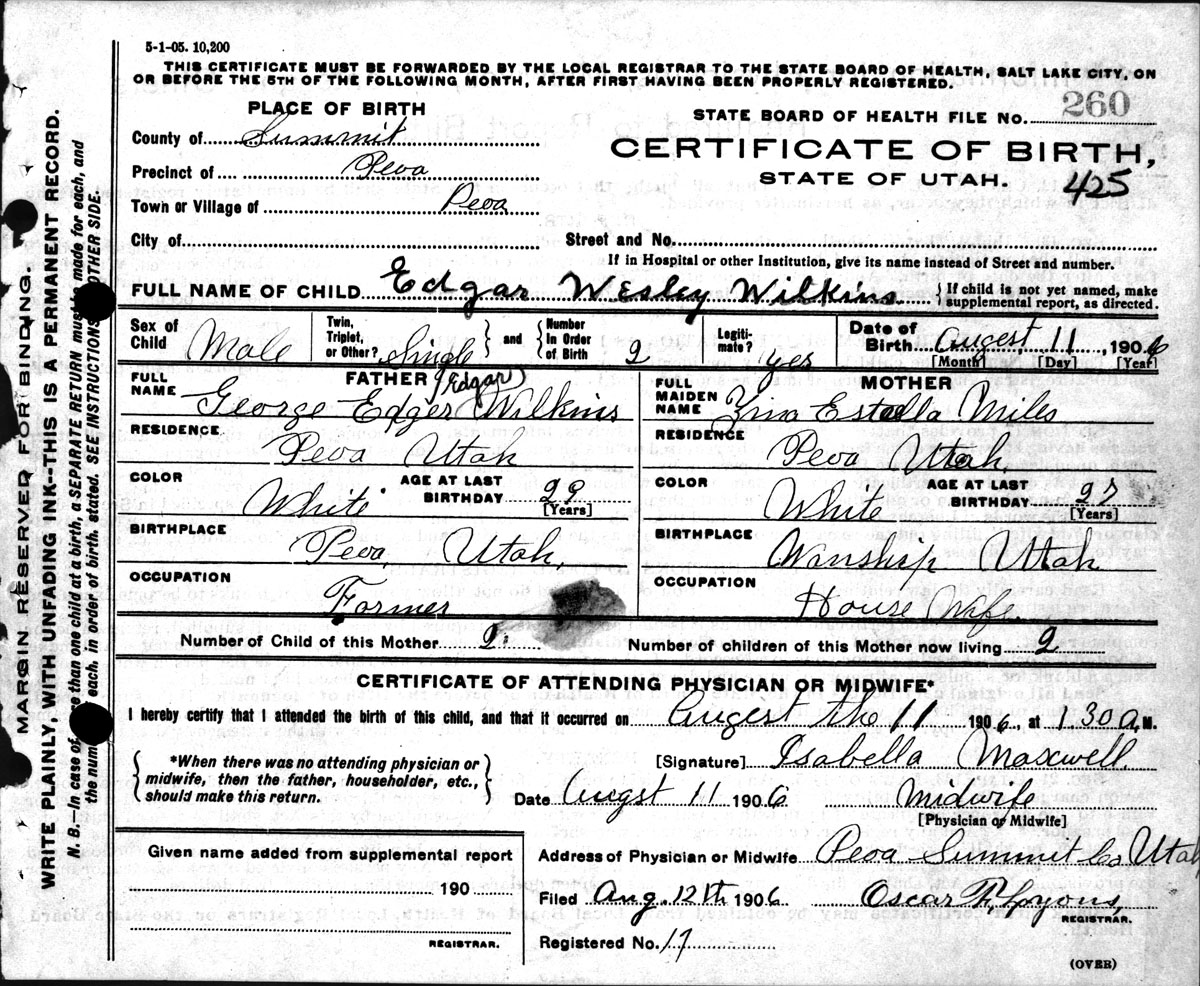 5-1-05. 10,200
THIS CERTIFICATE MUST BE FORWARDED BY THE LOCAL REGISTRAR TO THE STATE BOARD OF HEALTH, SALT LAKE CITY, ON
OR BEFORE THE 5TH OF THE FOLLOWING MONTH, AFTER FIRST HAVING BEEN PROPERLY REGISTERED.
PLACE OF BIRTH
STATE BOARD OF HEALTH FILE NO. 260
County of Summit
CERTIFICATE OF BIRTH,
Precinct of Peoa
STATE OF UTAH. 425
Town or Village of Peoa
City of
Street and No.
If in Hospital or other Institution, give its name instead of Street and number.
FULL NAME OF CHILD Edgar Wesley Wilkins { If child is not yet named, make supplemental report, as directed.
Sex of Child Male
Twin, Triplet, or Other? Single } and { Number In Order of Birth 2
Legitimate? yes
Date of Birth Augest 11, 1906
[Month] [Day] [Year]
FATHER
FULL NAME George Edger (Edgar) Wilkins
RESIDENCE Peoa Utah
COLOR White
AGE AT LAST BIRTHDAY 29 [Years]
BIRTHPLACE Peoa, Utah,
OCCUPATION Farmer
MOTHER
FULL MAIDEN NAME Zina Estella Miles
RESIDENCE Peoa Utah,
COLOR White
AGE AT LAST BIRTHDAY 27 [Years]
BIRTHPLACE Wanship Utah
OCCUPATION House Wife
Number of Child of this Mother 2
Number of children of this Mother now living 2
CERTIFICATE OF ATTENDING PHYSICIAN OR MIDWIFE*
I hereby certify that I attended the birth of this child, and that it occurred on Augest the 11 1906, at 1.30 A. M.
{ *When there was no attending physician or
midwife, then the father, householder, etc.,
should make this return. }
[Signature] Isabella Maxwell
Date Augst 11 1906 Midwife
[Physician or Midwife]
Given name added from supplemental report
190
REGISTRAR.
Address of Physician or Midwife Peoa Summit Co Utah
Filed Aug. 12th 1906 Oscar F. Lyons,
REGISTRAR.
Registered No. 17
(OVER)
MARGIN RESERVED FOR BINDING.
WRITE PLAINLY, WITH UNFADING INK--THIS IS A PERMANENT RECORD.
N. B.—In case of more than one child at a birth, a SEPARATE RETURN must be made for each, and
the number of each, in order of birth, stated. SEE INSTRUCTIONS ON OTHER SIDE.